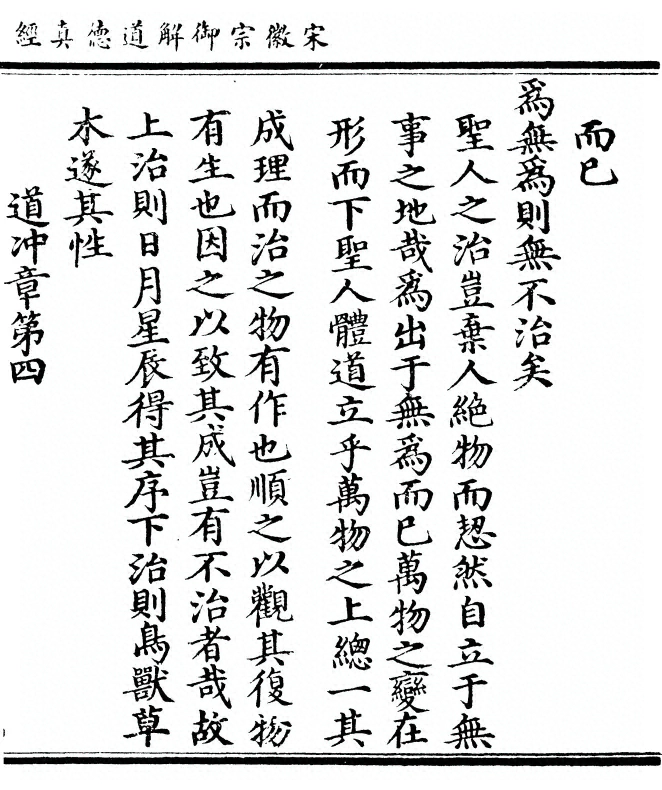 宋徽宗御解道德真經
而已
爲無爲則無不治矣
聖人之治豈棄人絶物而恝然自立于無
事之地哉爲出于無爲而已萬物之變在
形而下聖人體道立乎萬物之上總一其
成理而治之物有作也順之以觀其復物
有生也因之以致其成豈有不治者哉故
上治則日月星辰得其序下治則鳥獸草
木遂其性
道冲章第四